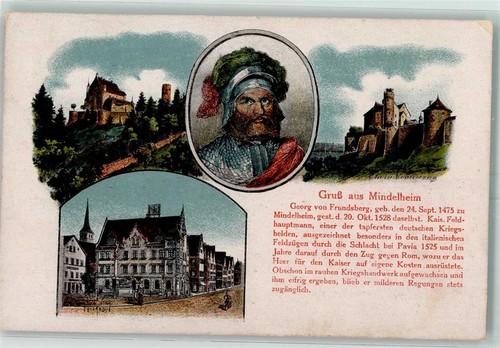 Gruß aus Mindelheim
Georg von Frundsberg, geb. den 24. Sept. 1475 zu
Mindelheim, gest. d. 20. Okt. 1528 daselbst. Kais. Feld-
hauptmann, einer der tapfersten deutschen Kriegs-
helden, ausgezeichnet besonders in den italienischen
Feldzügen durch die Schlacht bei Pavia 1525 und im
Jahre darauf durch den Zug gegen Rom, wozu er das
Heer für den Kaiser auf eigene Kosten ausrüstete.
Obschon im rauhen Kriegshandwerk aufgewachsen und
ihm eifrig ergeben, blieb er milderen Regungen stets
zugänglich.